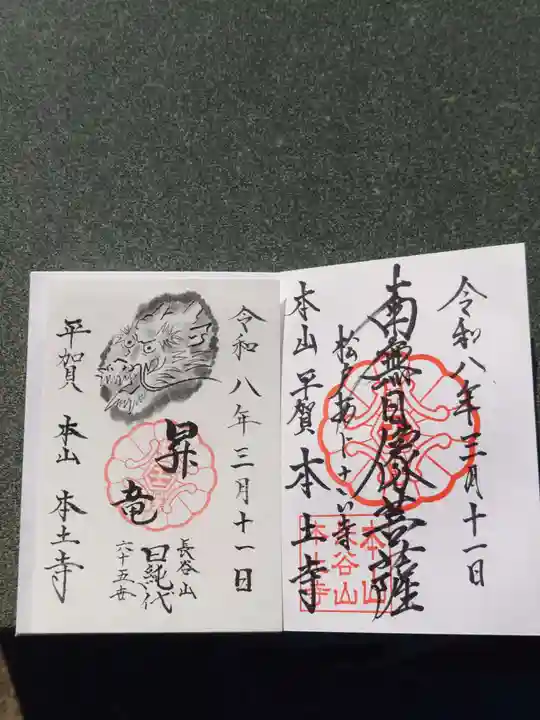 令和八年三月十一日
南無日像菩薩
松戸あじさい寺
本山平賀 本土寺
本山
長谷山
本土寺
令和八年三月十一日
昇竜
長谷山
日純代
六十五世
平賀 本山 本土寺